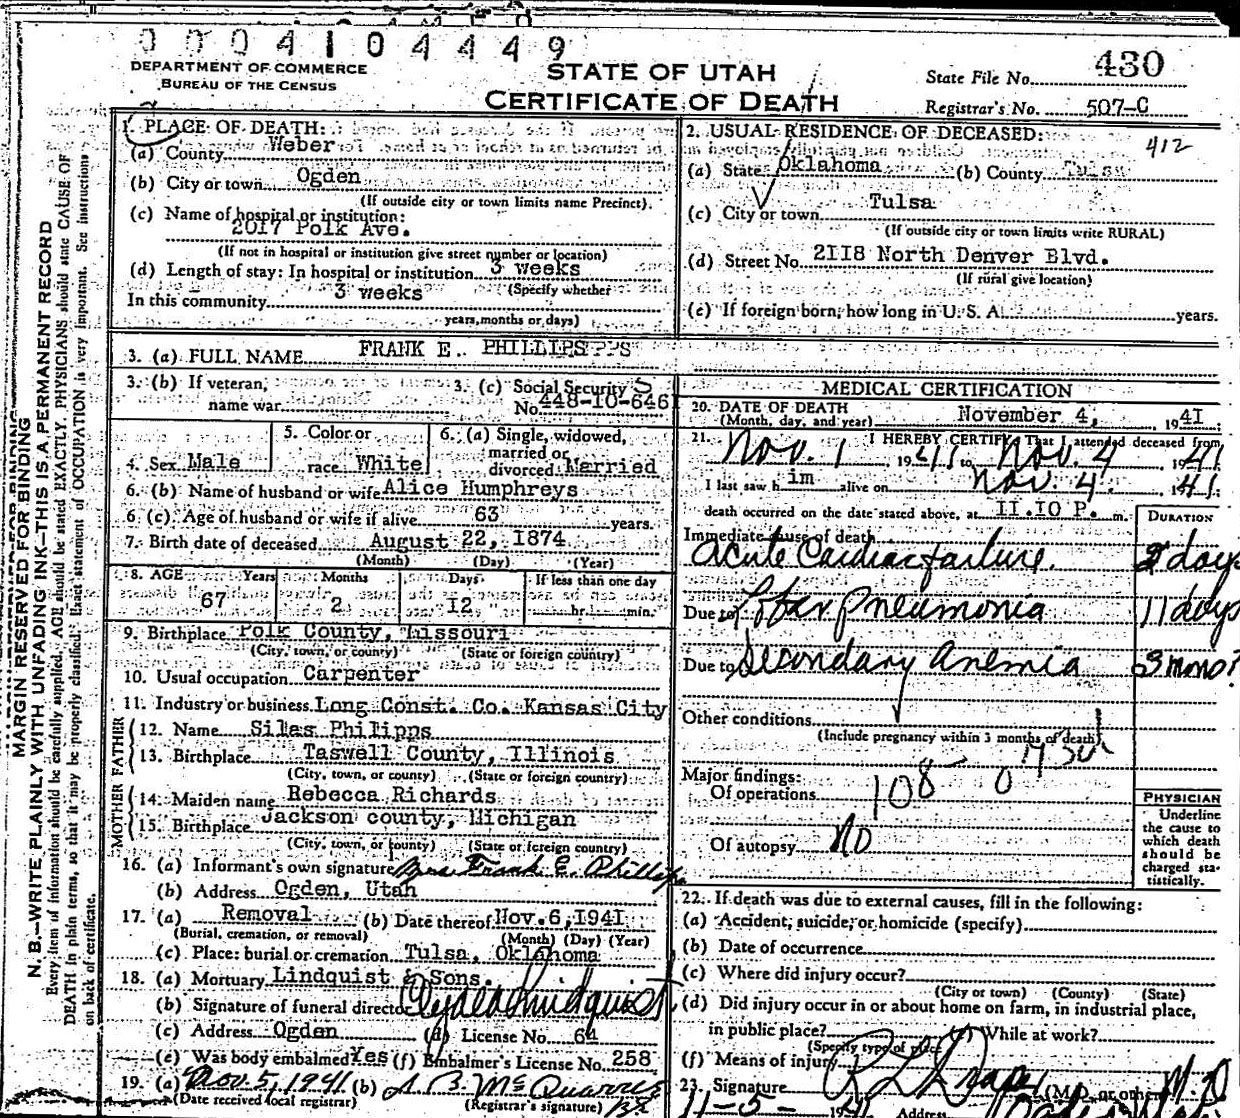 0004104449
DEPARTMENT OF COMMERCE
BUREAU OF THE CENSUS
STATE OF UTAH
CERTIFICATE OF DEATH
State File No. 430
Registrar's No. 507-C
1. PLACE OF DEATH:
(a) County Weber
(b) City or town Ogden
(If outside city or town limits name Precinct).
(c) Name of hospital or institution:
2017 Polk Ave.
(If not in hospital or institution give street number or location)
(d) Length of stay: In hospital or institution 3 weeks
(Specify whether
In this community 3 weeks
years, months or days)
2. USUAL RESIDENCE OF DECEASED:
412
(a) State Oklahoma (b) County Tulsa
(c) City or town Tulsa
(If outside city or town limits write RURAL)
(d) Street No. 2118 North Denver Blvd.
(If rural give location)
(e) If foreign born, how long in U. S. A. years.
3. (a) FULL NAME FRANK E. PHILLIPS
3. (b) If veteran, name war
3. (c) Social Security No. 448-10-6461
4. Sex Male
5. Color or race White
6. (a) Single, widowed, married or divorced Married
6. (b) Name of husband or wife Alice Humphreys
6 (c). Age of husband or wife if alive 63 years.
7. Birth date of deceased August 22, 1874
(Month) (Day) (Year)
8. AGE Years Months Days If less than one day
67 2 12 hr. min.
9. Birthplace Polk County, Missouri
(City, town, or county) (State or foreign country)
10. Usual occupation Carpenter
11. Industry or business Long Const. Co. Kansas City
FATHER
12. Name Silas Philipps
13. Birthplace Taswell County, Illinois
(City, town, or county) (State or foreign country)
MOTHER
14. Maiden name Rebecca Richards
15. Birthplace Jackson county, Michigan
(City, town, or county) (State or foreign country)
16. (a) Informant's own signature Mrs Frank E. Phillips
(b) Address Ogden, Utah
17. (a) Removal (b) Date thereof Nov. 6, 1941
(Burial, cremation, or removal) (Month) (Day) (Year)
(c) Place: burial or cremation Tulsa, Oklahoma
18. (a) Mortuary Lindquist & Sons.
(b) Signature of funeral director Clyde Lindquist
(c) Address Ogden (d) License No. 64
(e) Was body embalmed Yes (f) Embalmer's License No. 258
19. (a) Nov. 5, 1941 (b)
(Date received local registrar) (Registrar's signature)
MEDICAL CERTIFICATION
20. DATE OF DEATH
(Month, day, and year) November 4, 1941
21. I HEREBY CERTIFY That I attended deceased from
Nov. 1, 1941 to Nov. 4 1941
I last saw him alive on Nov. 4. 1941.
death occurred on the date stated above, at 11.10 P. m.
DURATION
Immediate cause of death
Acute Cardiac failure. 2 days
Due to Lobar Pneumonia 11 days
Due to Secondary Anemia 3 mons?
Other conditions
(Include pregnancy within 3 months of death)
Major findings:
Of operations 108
Of autopsy No
PHYSICIAN
Underline the cause to which death should be charged statistically.
22. If death was due to external causes, fill in the following:
(a) Accident, suicide, or homicide (specify)
(b) Date of occurrence
(c) Where did injury occur?
(City or town) (County) (State)
(d) Did injury occur in or about home on farm, in industrial place,
in public place? (e) While at work?
(Specify type of place)
(f) Means of injury
23. Signature (M.D. or other) M D
11-5- 1941 Address
MARGIN RESERVED FOR BINDING
N. B.—WRITE PLAINLY WITH UNFADING INK—THIS IS A PERMANENT RECORD
Every item of information should be carefully supplied. AGE should be stated EXACTLY. PHYSICIANS should state CAUSE OF
DEATH in plain terms, so that it may be properly classified. Exact statement of OCCUPATION is very important. See instructions
on back of certificate.